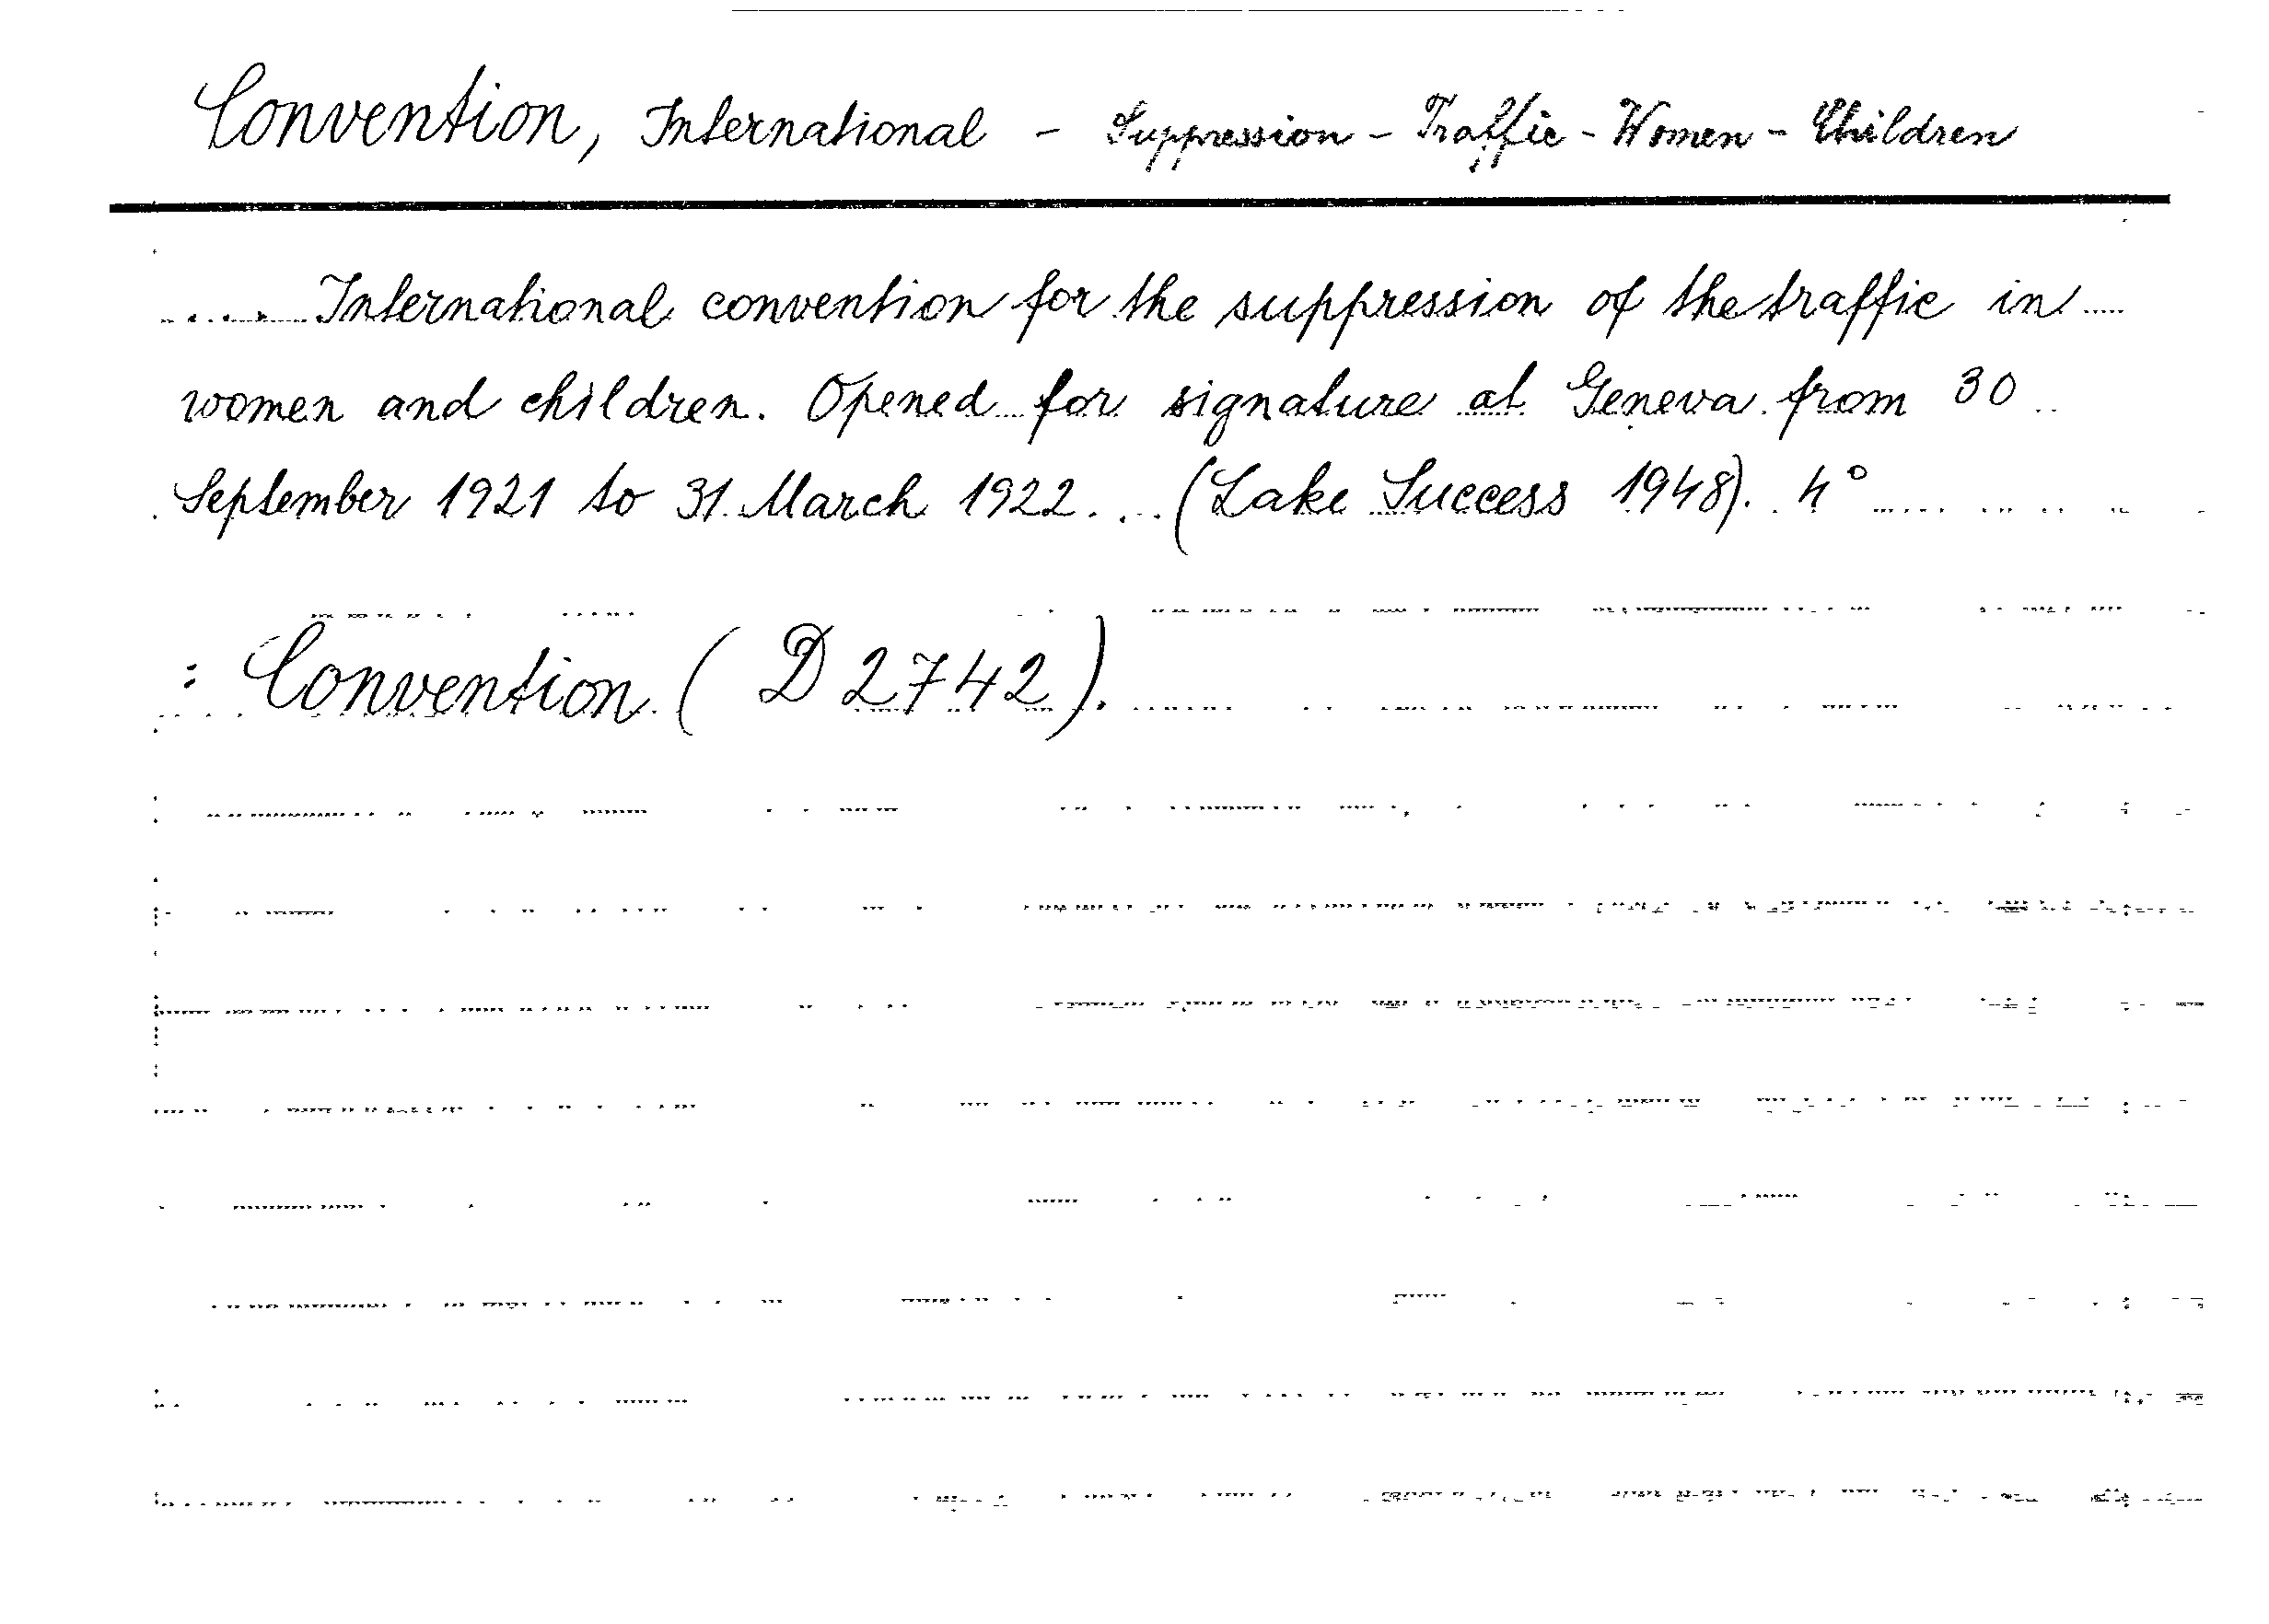 Convention, International - Suppression - Traffic - Women - Children
International convention for the suppression of the traffic in
women and children. Opened for signature at Geneva from 30
September 1921 to 31 March 1922. .. (Lake Success 1948). 4°
: Convention (D 2742).